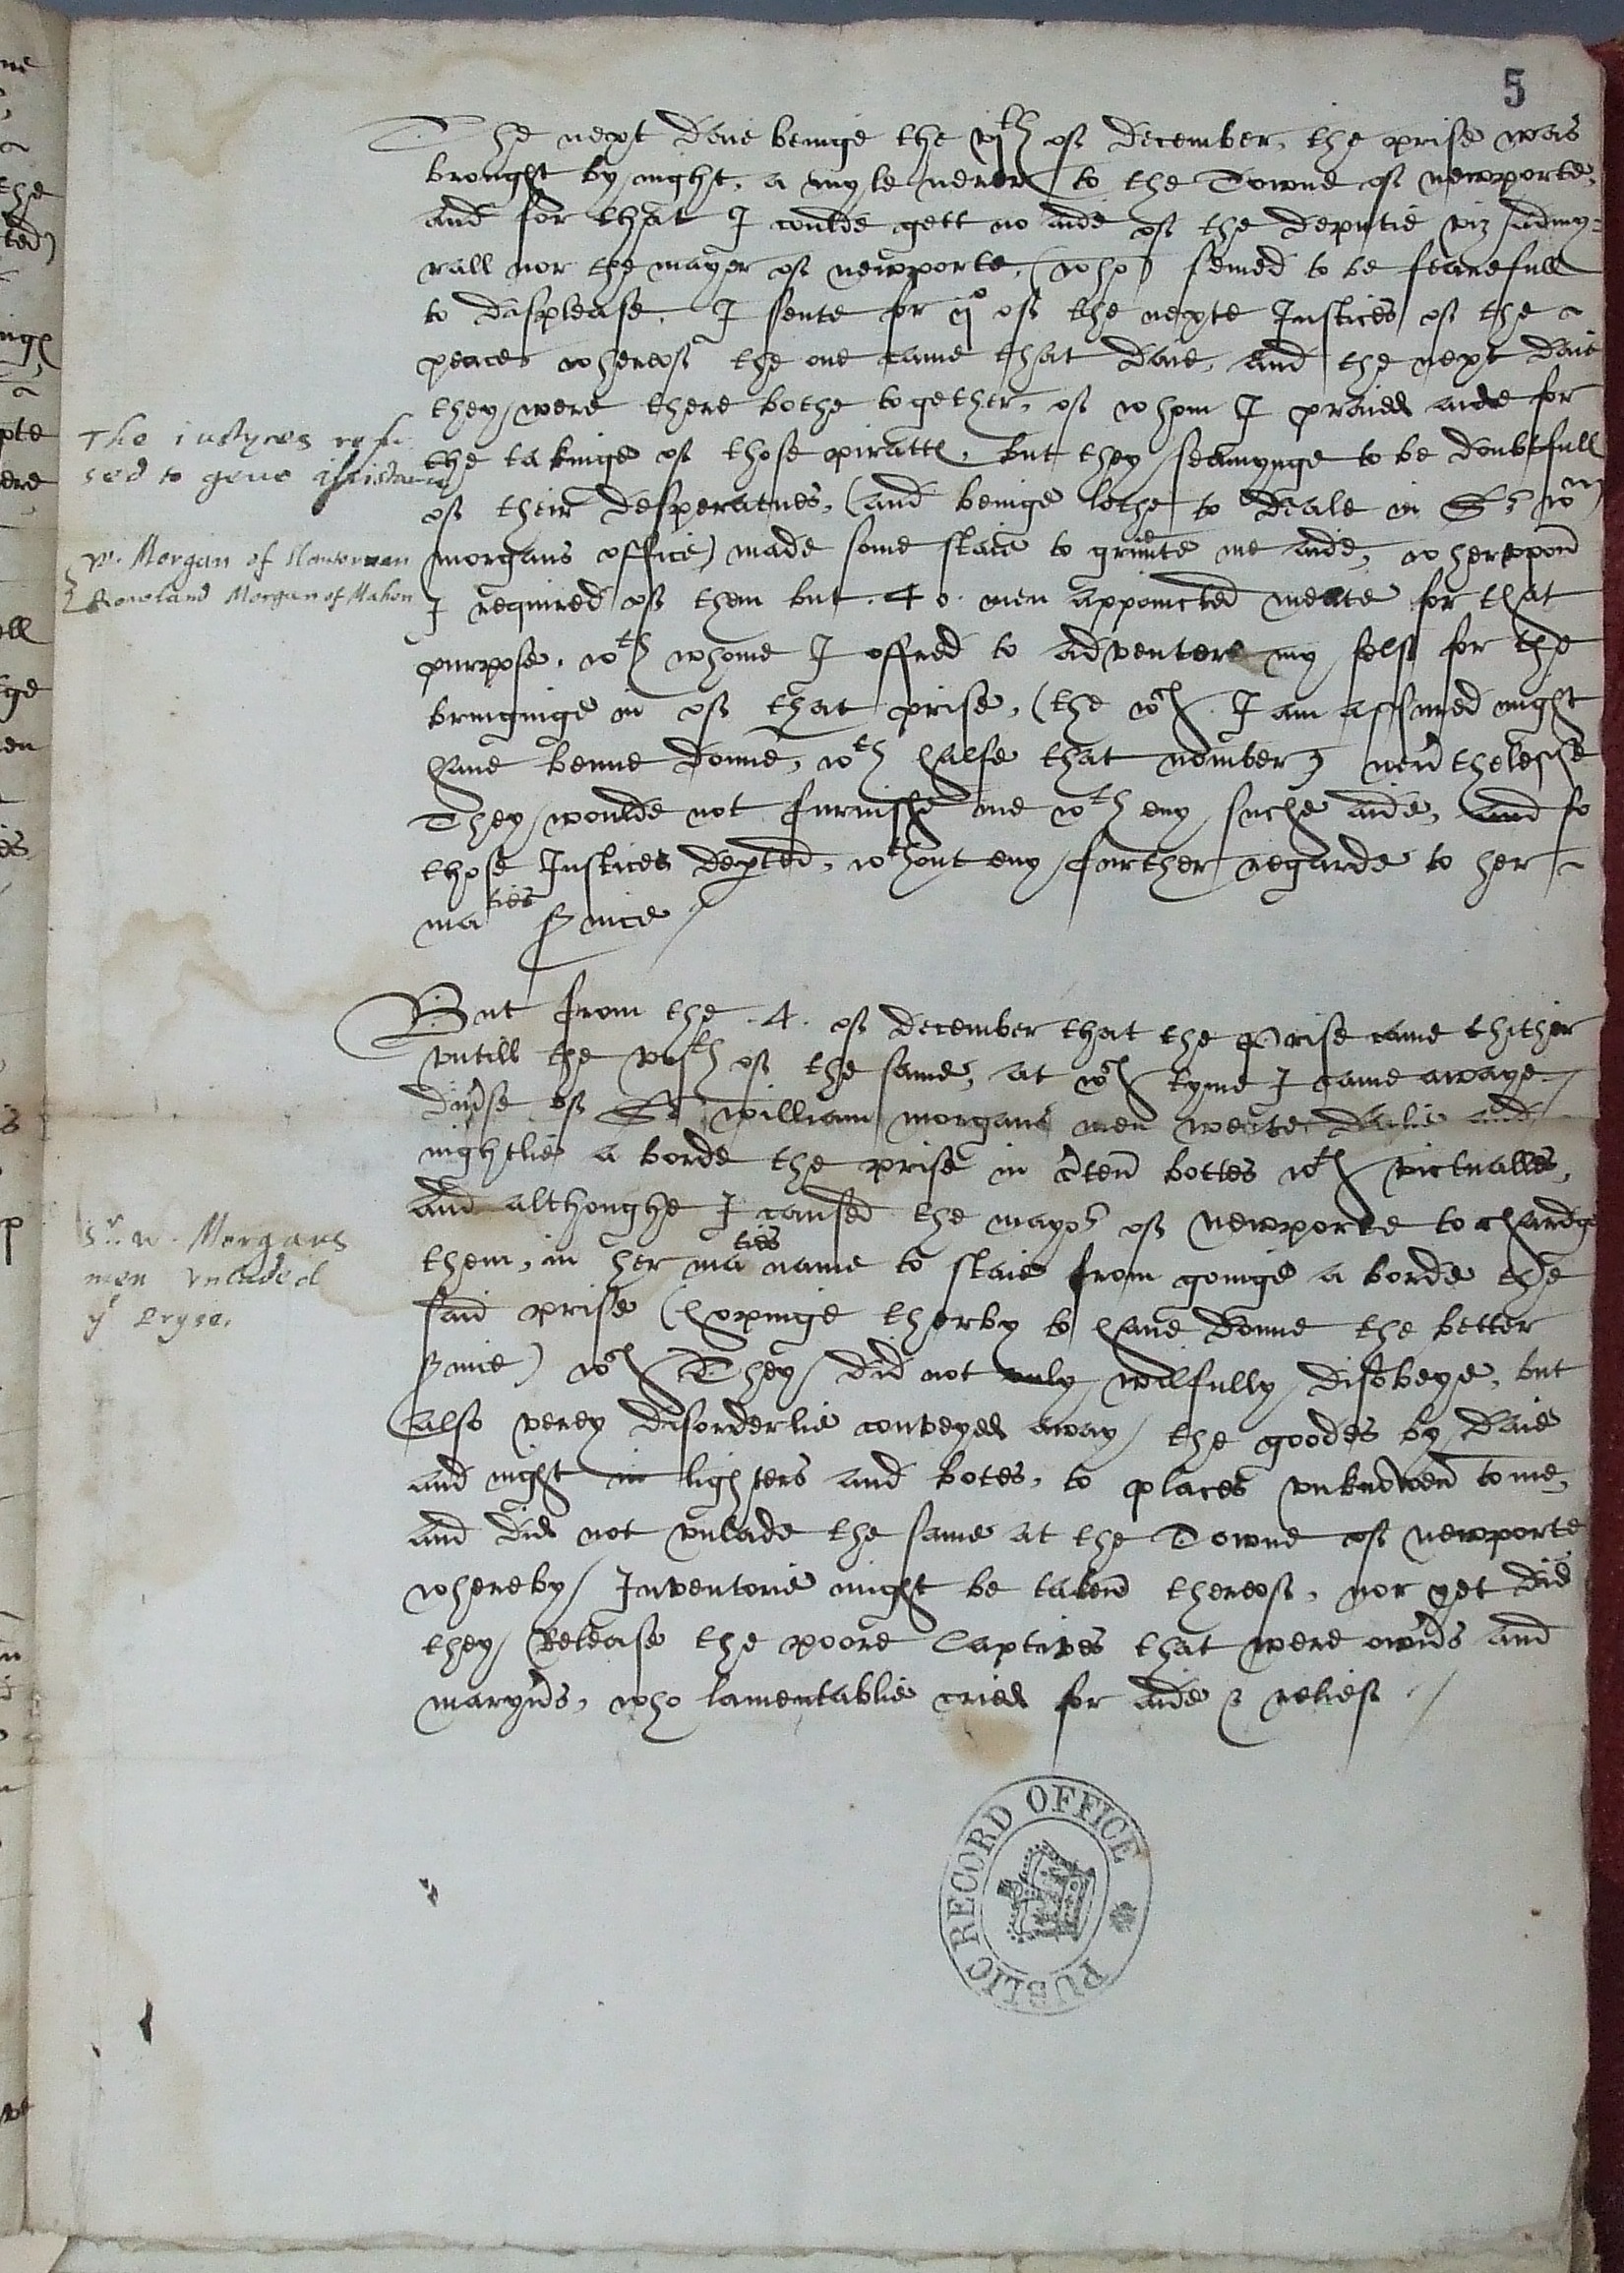 5
The next daie beinge the vjth of december, the prise was
brought by night, a myle nerer to the Towne of newporte,
and for that I coulde gett no aide of the deputie viz admy=
rall nor the mayer of newporte, (who) semed to be fearefull
to displease, I sente for ijo of the nexte Iustices of the
peace whereof the one came that daie, and the next daie
they were there bothe together, of whom I praied aide for
The iustyces refu
sed to geue assistance
the takinge of those piratts, but they seamynge to be doubtfull
of their desperatnes, (and beinge lothe to deale in Sr Wm
W. Morgan of
Rowland Morgan of Mahon
morgans office) made some staie to graunte me aide, wherevpon
I required of them but .40. men appoincted meate for that
purpose, wth whome I offred to adventere my self for the
bringinge in of that prise, (the wch I am assured might
haue benne donne, wth halfe that nomber) neuthelesse
They woulde not furnishe me wth eny suche aide, and so
those Iustices depted, wthout eny further regarde to her
maties suice /
But from the .4. of december that the Prise came thither
vntill the viijth of the same, at wch tyme I came awaye
diuse of Sr william morgans men weare dailie and
nightlie a borde the prise in cten bottes wth victualles,
and althoughe I caused the mayor of newporte to chardge
Sr. w. Morgans
men vnladed
ye pryse.
them, in her maties name to staie from goinge a borde the
said prise (hopinge therby to haue donne the better
suice) wch They did not only wilfully disobeye, but
also verey disorderlie conveyed away the goodes by daie
and night in lighters and botes, to places vnknowen to me,
and did not vnlade the same at the Towne of newporte
whereby Inventorie might be taken thereof, nor yet did
they Release the poore Captives that were owners and
maryners, who lamentablie cried for aide & relief /
PUBLIC RECORD OFFICE